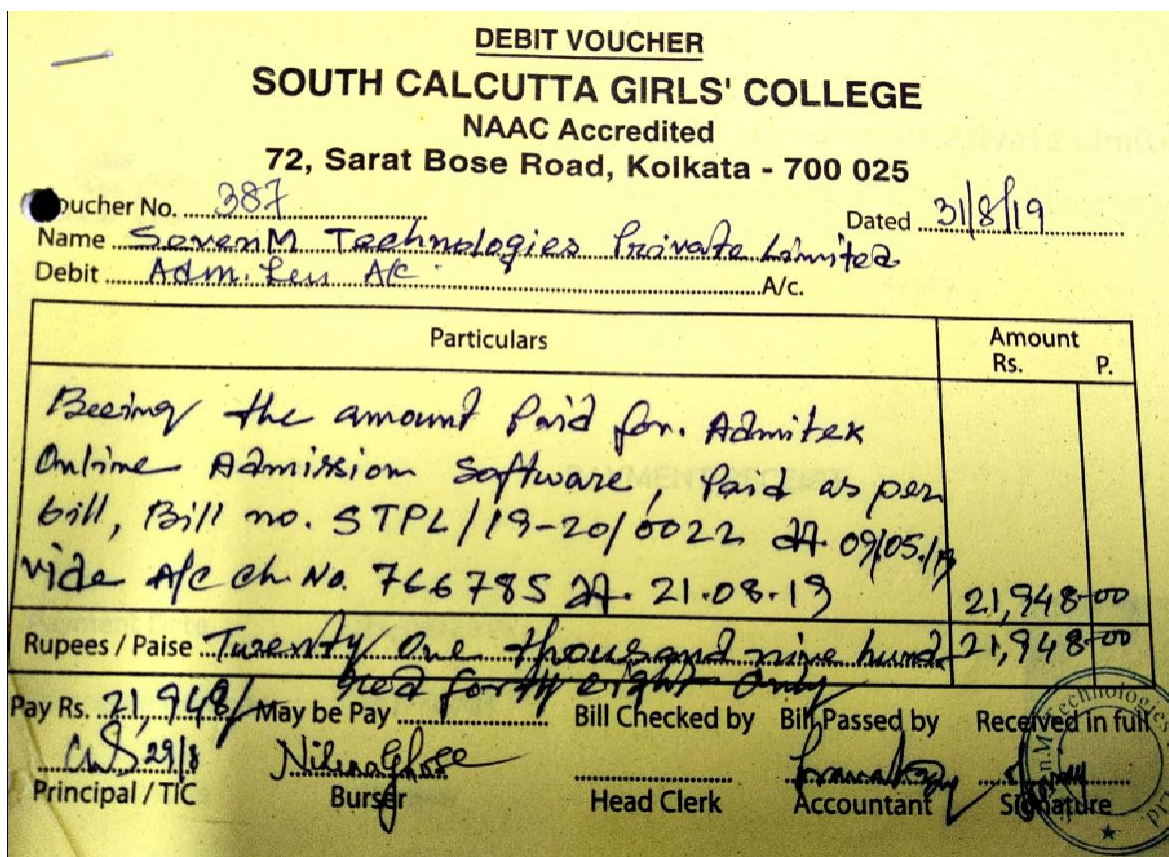 DEBIT VOUCHER
SOUTH CALCUTTA GIRLS' COLLEGE
NAAC Accredited
72, Sarat Bose Road, Kolkata - 700 025
oucher No. 387 Dated 31/8/19
Name SevenM Technologies Private Limited
Debit Adm. A/c. A/c.
Particulars Amount
Rs. P.
Beeing the amount Paid for. Admitex
Online Admission Software, Paid as per
bill, Bill no. STPL/19-20/0022 dt. 09/05/19
vide A/c Ch. No. 766785 dt. 21.08.19 21,948-00
Rupees / Paise Twenty One thousand nine hund 21,948-00
red forty eight only
Pay Rs. 21,948/- May be Pay Bill Checked by Bill Passed by Received in full
29/8
Principal / TIC Burser Head Clerk Accountant Signature